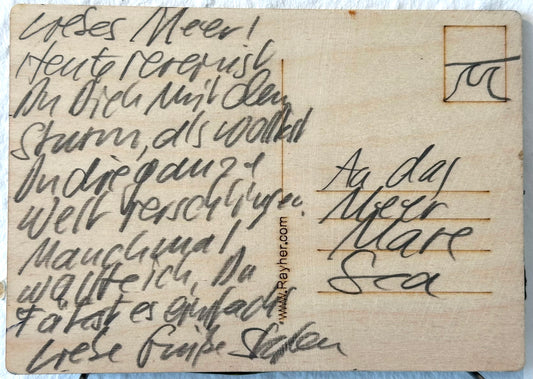 Liebes Meer!
Heute vereinigst
Du Dich mit dem
Sturm, als wolltest
Du die ganze
Welt verschlingen.
Manchmal
wollte ich, Du
tätest es einfach!
Liebe Grüße
www.Rayher.com
An das
Meer
Mare
Sea